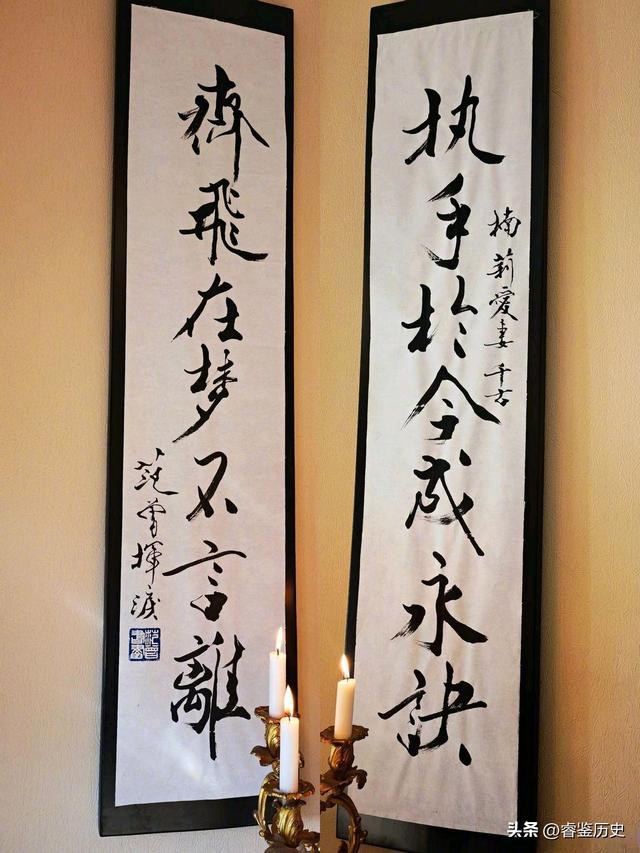 执手於今成永訣
楠莉愛妻 千古
齊飛在梦不言離
范曾揮淚
头条 @睿鉴历史